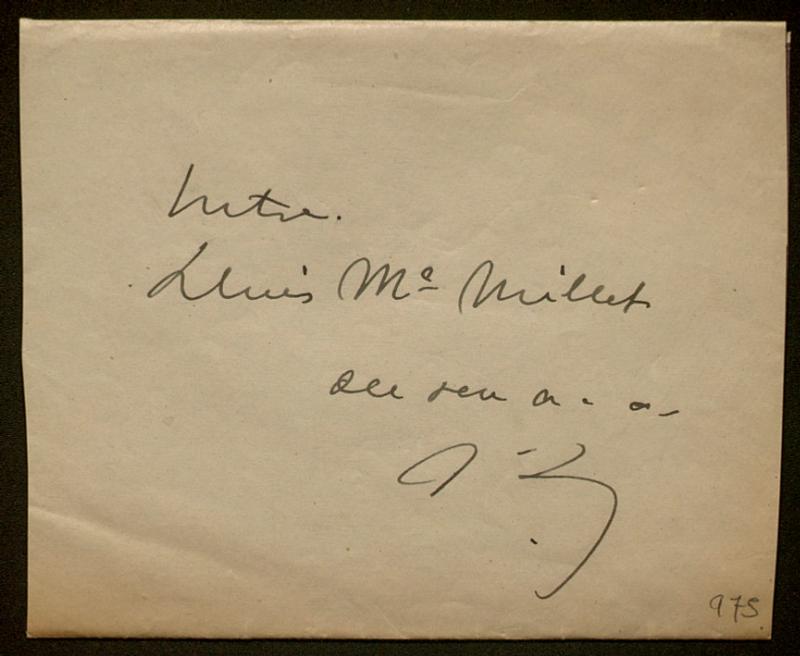 Mtre.
Lluis Mª Millet
del seu a. a.
975